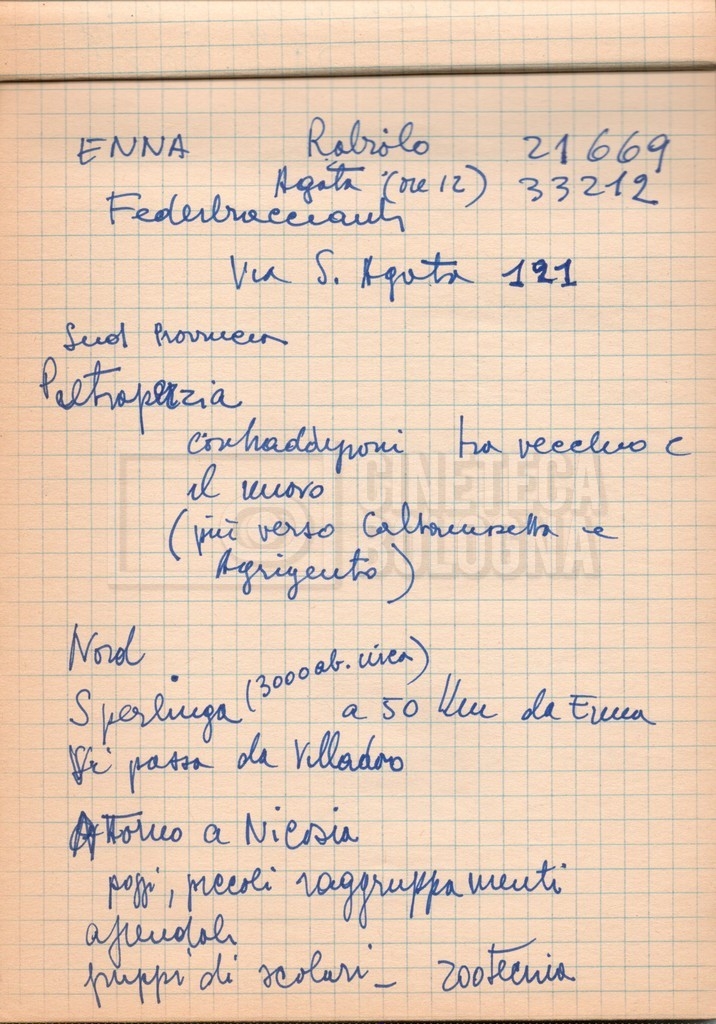 ENNA Rabiolo 21669
Agata (ore 12) 33212
Federbraccianti
Via S. Agata 121
Sud Provincia
Pietraperzia
contraddizioni tra vecchio e
il nuovo
(più verso Caltanissetta e
Agrigento)
Nord
Sperlinga (3000 ab. circa) a 50 Km da Enna
Si passa da Villadoro
Attorno a Nicosia
poggi, piccoli raggruppamenti
aziendali
gruppi di scolari - zootecnia
CINETECA
BOLOGNA